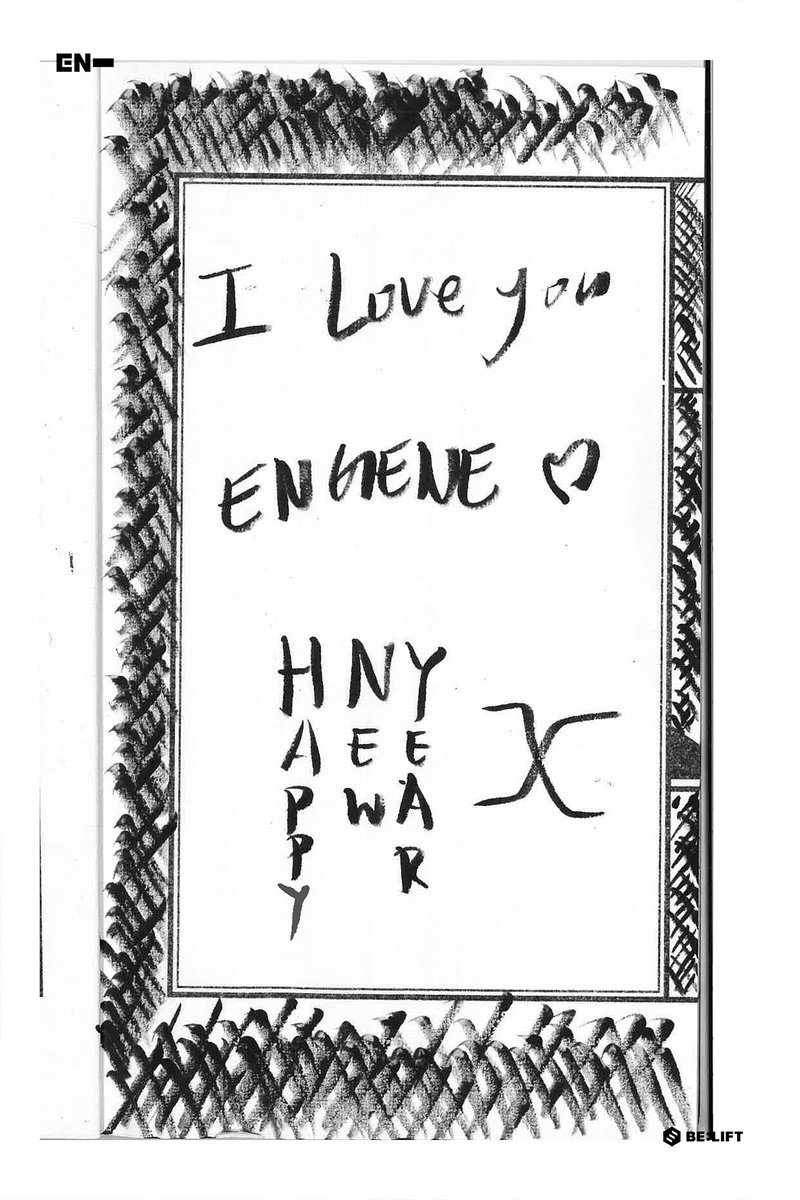 EN-
I Love you
ENGENE ♡
HAPPY
NEW
YEAR
BE:LIFT